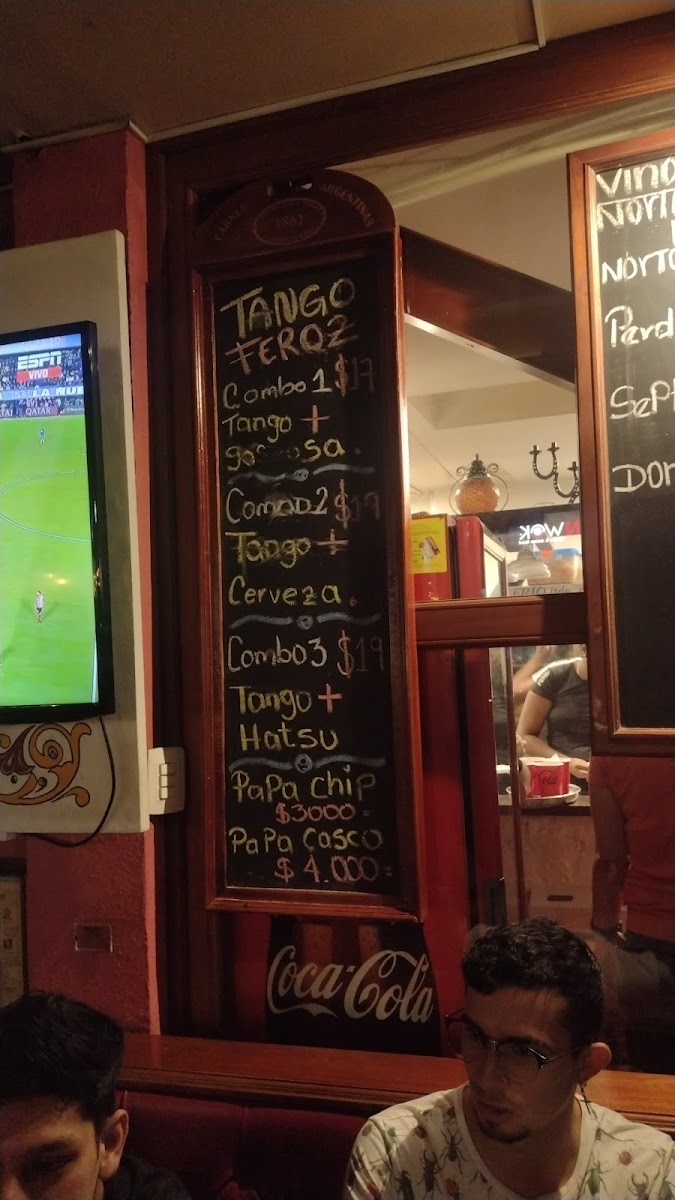 ESPN
VIVO
QATAR
CARNES ARGENTINAS
1861
TANGO
FEROZ
Combo 1 $17
Tango +
gaseosa.
Combo 2 $19
Tango +
Cerveza.
Combo 3 $19
Tango +
Hatsu
PaPa chip
$3000=
PaPa Casco
$ 4.000=
Coca-Cola
Wok
Vino
NORT
NORTO
Perd
Sept
DON